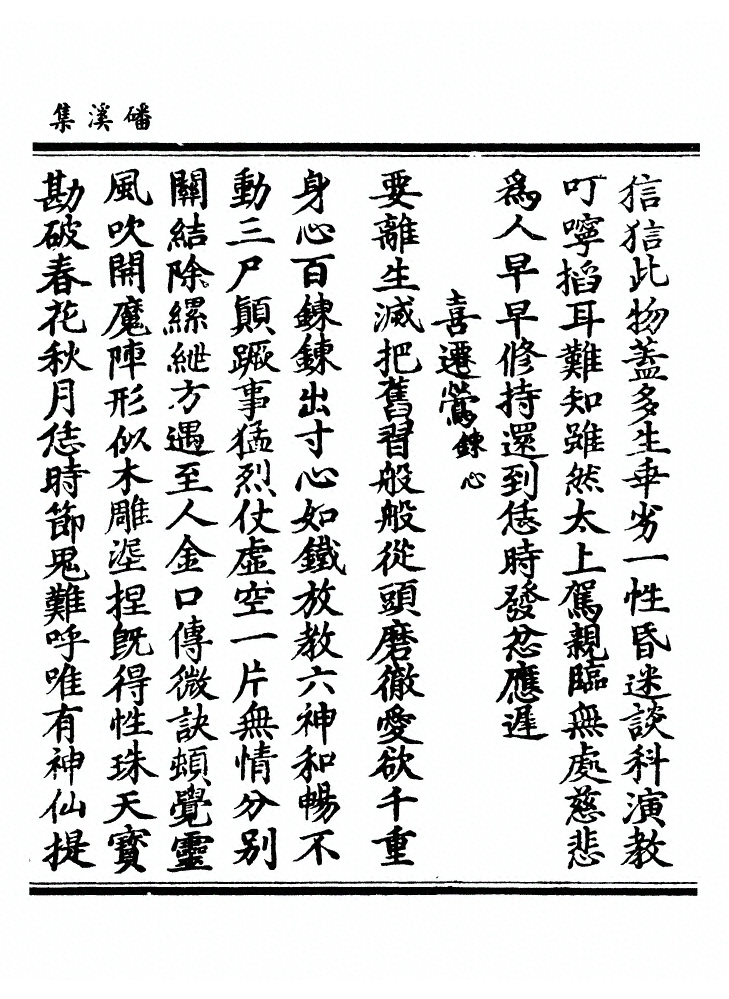 磻溪集
信信此物蓋多生乖劣一性昏迷談科演教
叮嚀搯耳難知雖然太上駕親臨無處慈悲
爲人早早修持還到恁時發忿應遲
喜遷鶯鍊心
要離生滅把舊習般般從頭磨徹愛欲千重
身心百鍊鍊出寸心如鐵放教六神和暢不
動三尸顛蹶事猛烈仗虛空一片無情分別
關結除縲紲方遇至人金口傳微訣頓覺靈
風吹開魔陣形似木雕埿捏旣得性珠天寶
勘破春花秋月恁時節鬼難呼唯有神仙提